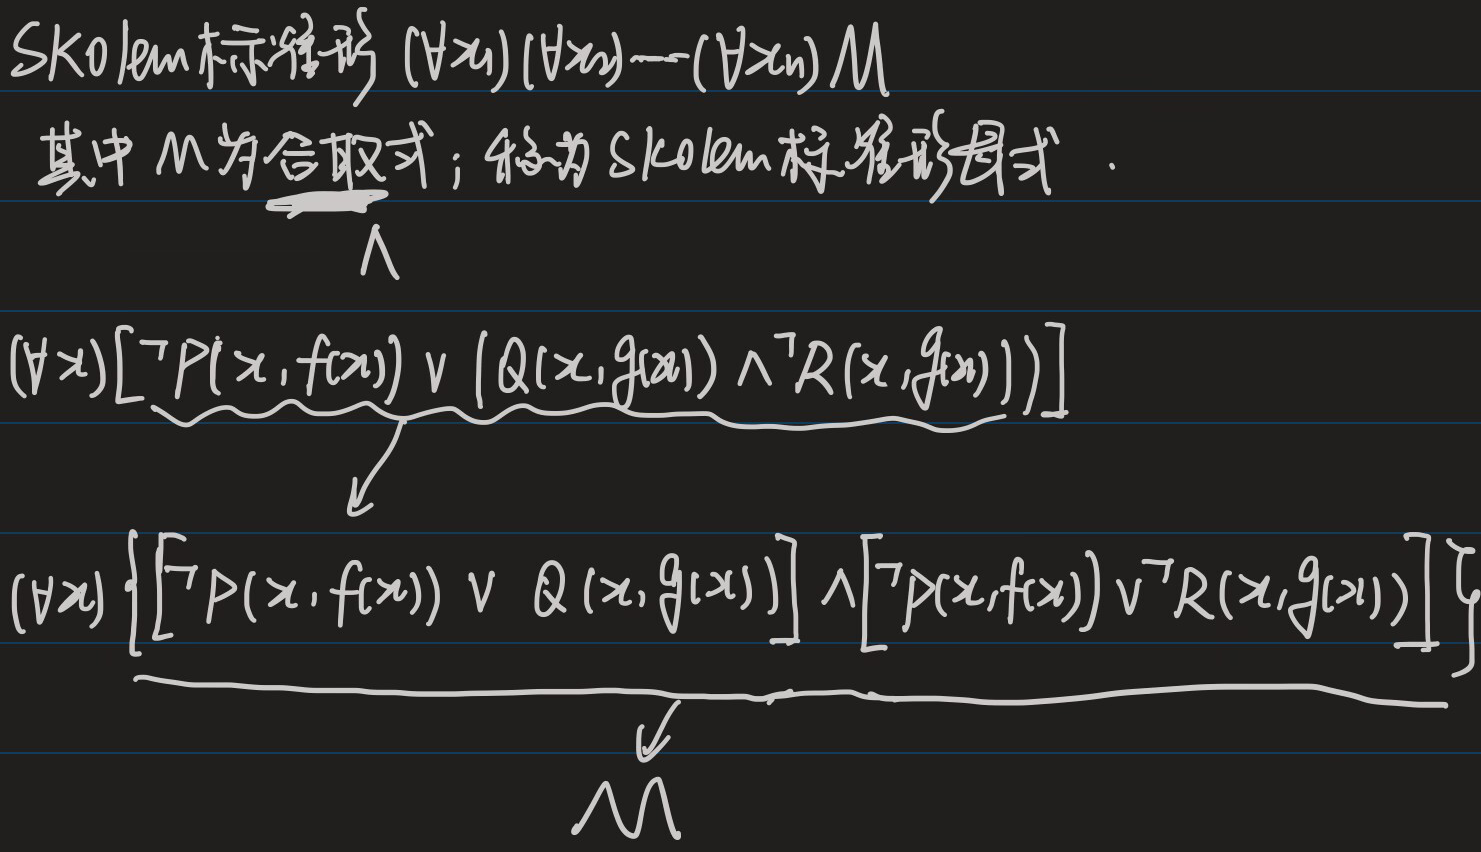 Skolem标准形 (∀x₁)(∀x₂)---(∀xₙ) M
其中 M为合取式; 称为Skolem标准形母式.
∧
(∀x)[¬P(x,f(x)) ∨ (Q(x,g(x)) ∧ ¬R(x,g(x)))]
(∀x) {[¬P(x,f(x)) ∨ Q(x,g(x))] ∧ [¬P(x,f(x)) ∨ ¬R(x,g(x))]}
M